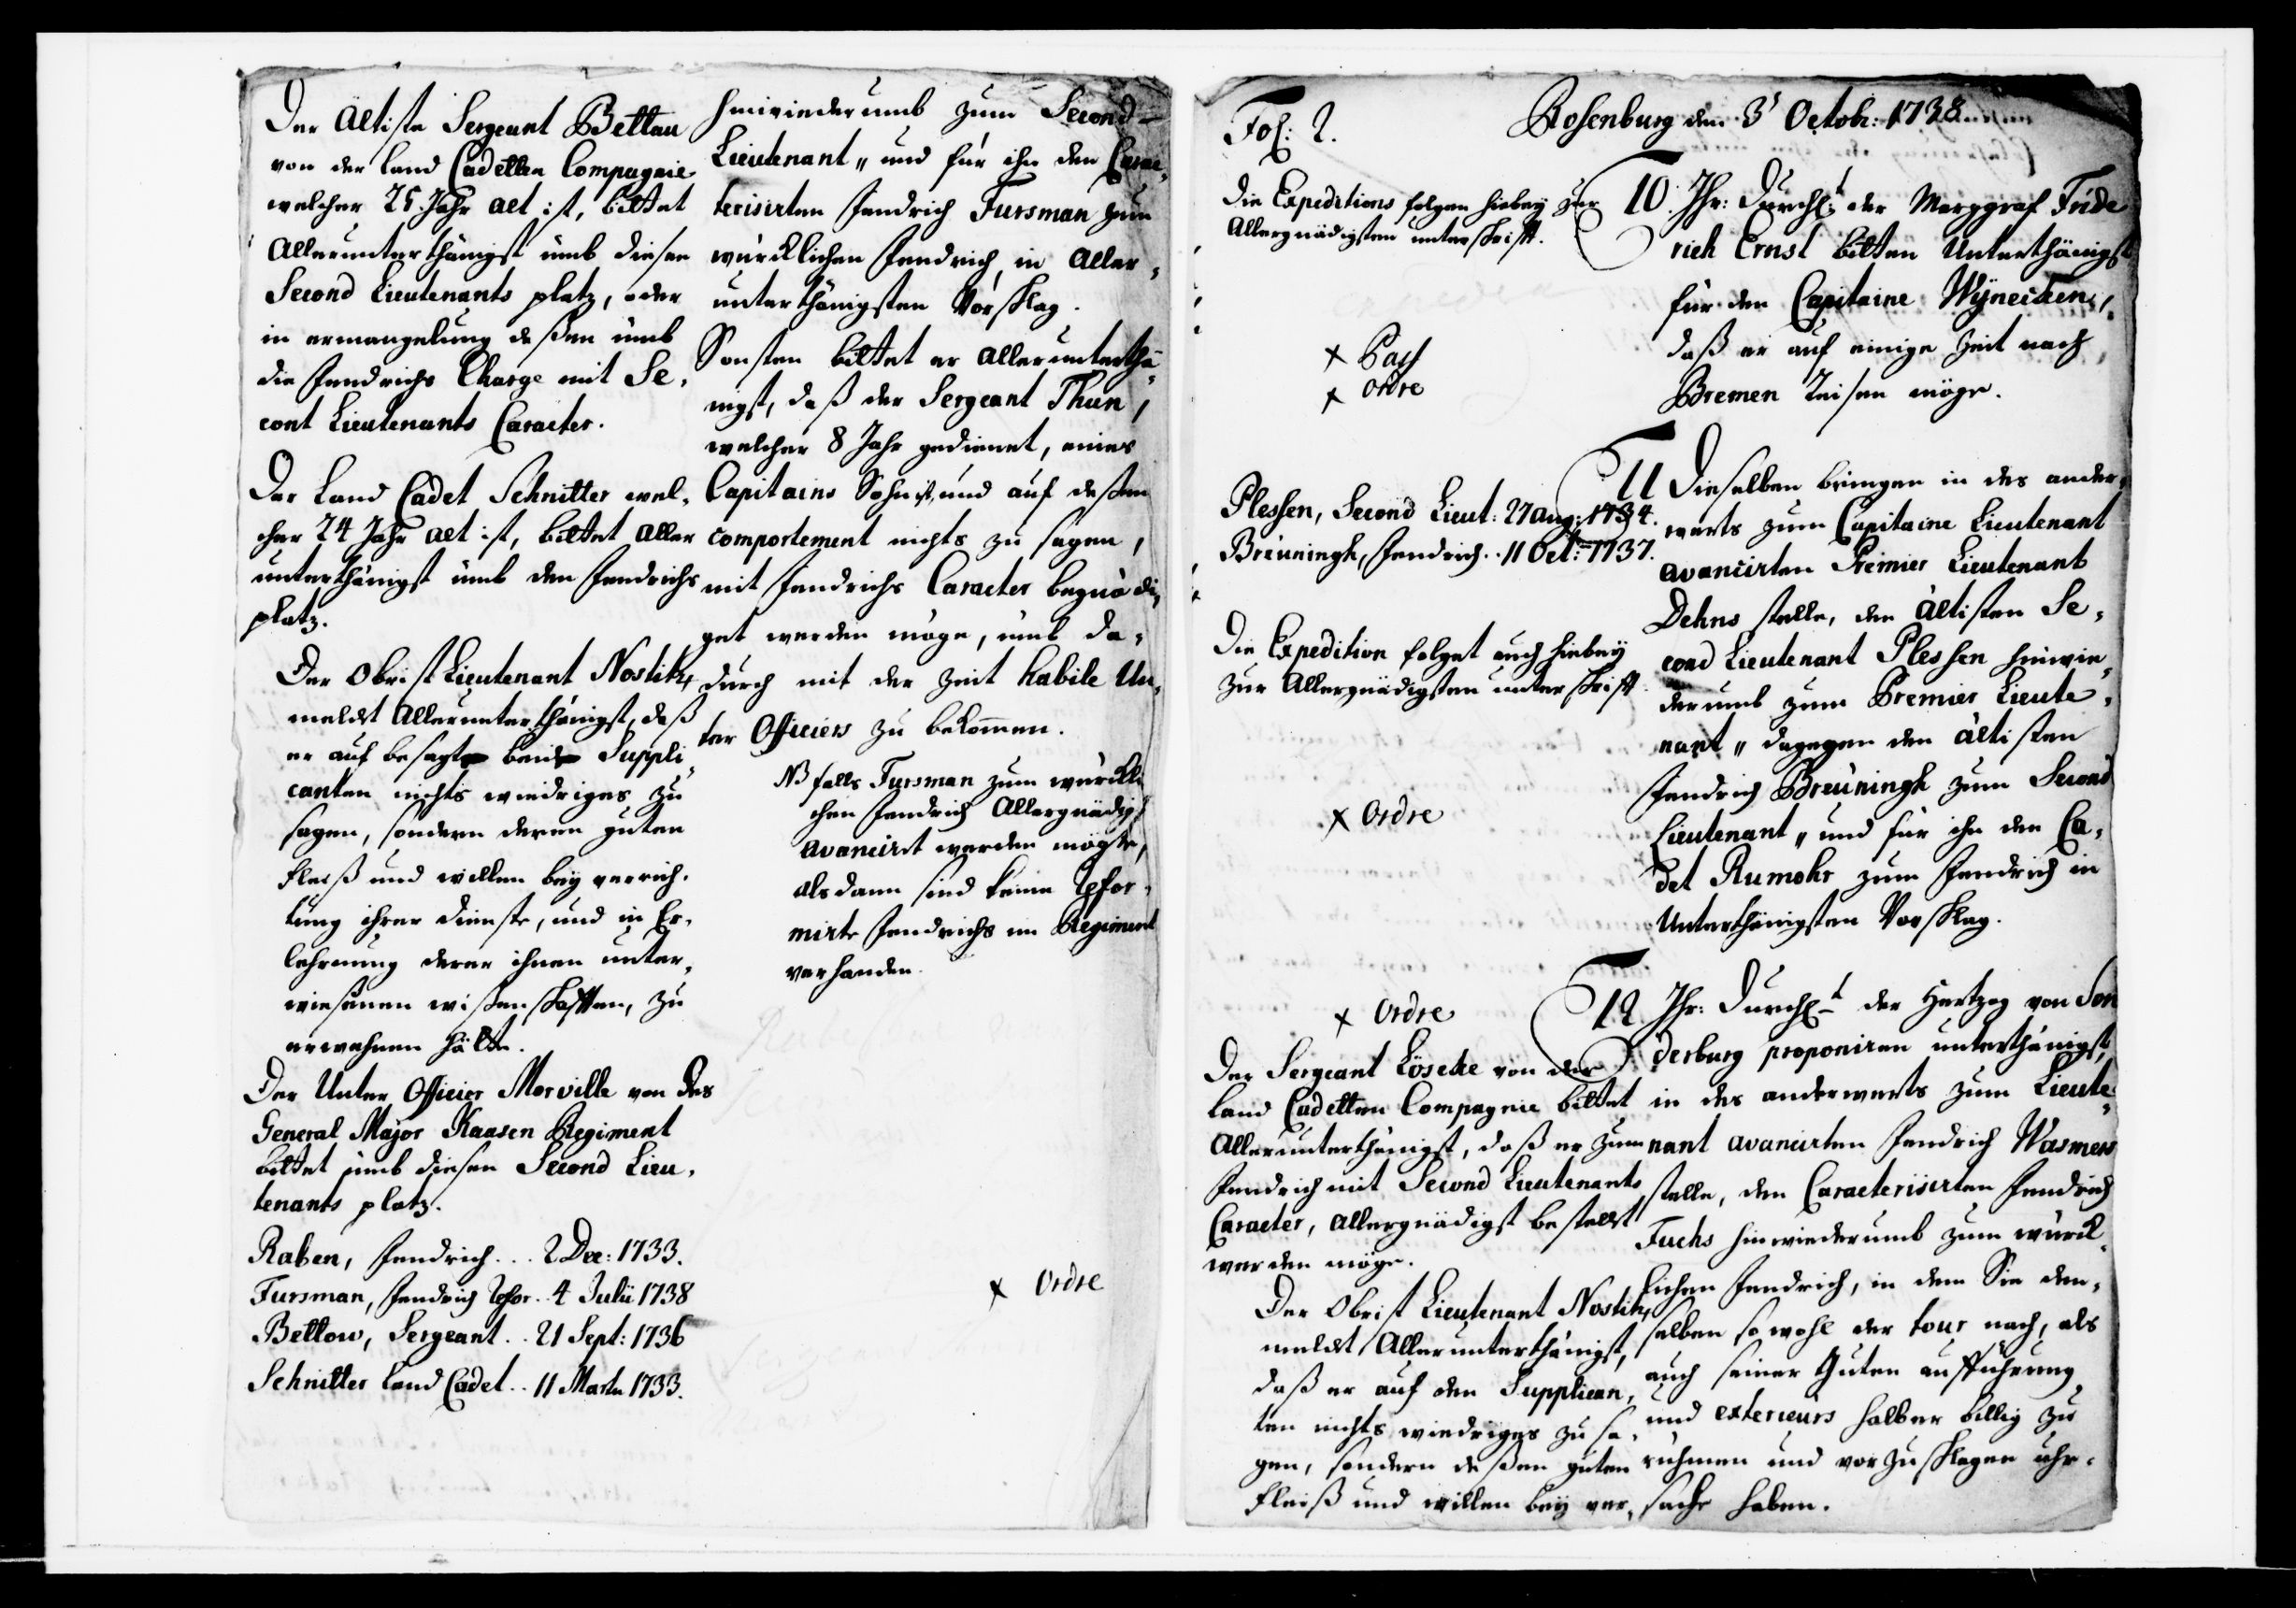 Der ältiste Sergeant Bettau
von der land Cadetten Compagnie
welcher 25 Jahr alt ist, bittet
Allerunterthänigst umb diesen
Second Lieutenants platz, oder
in ermangelung deßen umb
die Fendrichs Charge mit Se,
cont Lieutenants Caracter.
Der Land Cadet Schnitter wel,
cher 24 Jahr alt ist, bittet aller
unterthänigst umb den Fendrichs
platz.
Der Obrist Lieutenant Nostitz,
meldet Allerunterthänigst, daß
er auf besagte beide Suppli,
canten nichts wiedriges zu
sagen, sondern deren guten
fleiß und willen bey verrich,
tung ihrer dienste, und in Er,
lehrnung derer ihnen unter,
wiesenen wißenschafften, zu
erwehnen hätte.
Der Unter Officier Morville von des
General Major Kaasen Regiment
bittet umb diesen Second Lieu,
tenants platz.
Raben, Fendrich... 2 Dec: 1733.
Fursman, Fendrich Refor.. 4 Julii 1738
Bettow, Sergeant.. 21 Sept: 1736
Schnitter Land Cadet.. 11 Martii 1733.
hinwiederumb zum Second-
Lieutenant,, und für ihn den Carac,
terisirten Fendrich Fursman zum
würcklichen Fendrich, in Aller,
unterthänigsten Vorschlag.
Sonsten bittet er Allerunterthä,
nigst, daß der Sergeant Thun,
welcher 8 Jahr gedienet, eines
Capitains Sohn ist, und auf deßen
comportement nichts zu sagen,
mit Fendrichs Caracter begnädi,
get werden möge, umb da,
durch mit der Zeit habile Un,
ter Officiers zu bekommen.
NB falls Fursman zum würckli
chen Fendrich Allergnädigst
avancirt werden mögte,
alsdann sind keine Refor,
mirte Fendrichs im Regiment
verhanden.
x Ordre
Fol: 2.
Rosenburg den 3t Octobr: 1738
Die Expeditions folgen hiebey zur
Allergnädigsten unterschrifft.
10. Ihr: Durchl:t der Marggraf Fride
rich Ernst bitten Unterthänigst
für den Capitaine Wÿnecken,
daß er auf einige Zeit nach
Bremen Reisen möge.
x Pass
x Ordre
Plessen, Second Lieut: 27 Aug: 1734.
Breuningk, Fendrich.. 11 Oct: 1737.
11 Dieselben bringen in des ander,
werts zum Capitaine Lieutenant
avancirten Premier Lieutenant
Dehns stelle, den ältisten Se,
cond Lieutenant Plessen hinwie,
derumb zum Premier Lieute,
nant,, dagegen den ältisten
Fendrich Breuningk zum Second
Lieutenant,, und für ihn den Ca,
det Rumohr zum Fendrich in
Unterthänigsten Vorschlag.
Die Expedition folget auch hiebey
zur Allergnädigsten unterschrifft
x Ordre
x Ordre
12. Ihr: Durchl:t der Hertzog von Son
derburg proponiren unterthänigst,
in des anderwerts zum Lieute,
nant avancirten Fendrich Wasmers
stelle, den Caracterisirten Fendrich
Fuchs hinwiederumb zum würck,
lichen Fendrich, in dem Sie den,
selben sowohl der tour nach, als
auch seiner Guten aufführung
und exterieurs halber billig zu
rühmen und vorzuschlagen uhr,
sache haben.
Der Sergeant Löscke von der
land Cadetten Compagnie bittet
Allerunterthänigst, daß er zum
Fendrich mit Second Lieutenants
Caracter, Allergnädigst bestellet
werden möge.
Der Obrist Lieutenant Nostitz,
meldet Allerunterthänigst,
daß er auf den Supplican,
ten nichts wiedriges zu sa,
gen, sondern deßen guten
fleiß und willen bey ver,